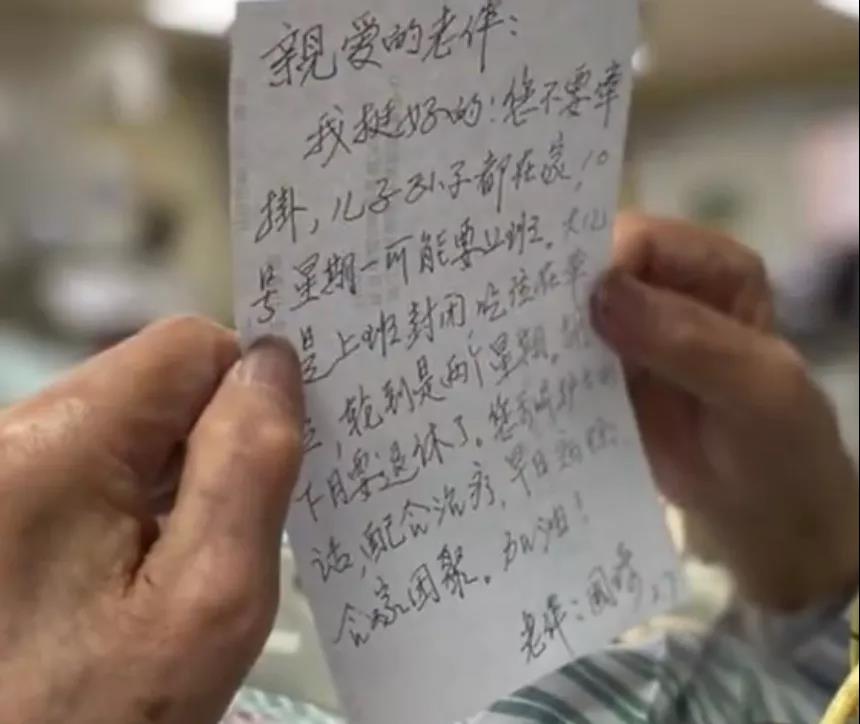 親爱的老伴:
我挺好的!您不要牵
掛,儿子孙子都在家,10
号星期一可能要上班。
是上班封闭,吃住在单
,轮到是两个星期。
下月要退休了。您要听护士的
话,配合治疗,早日
合家团聚。加油!
老伴:国 2.7